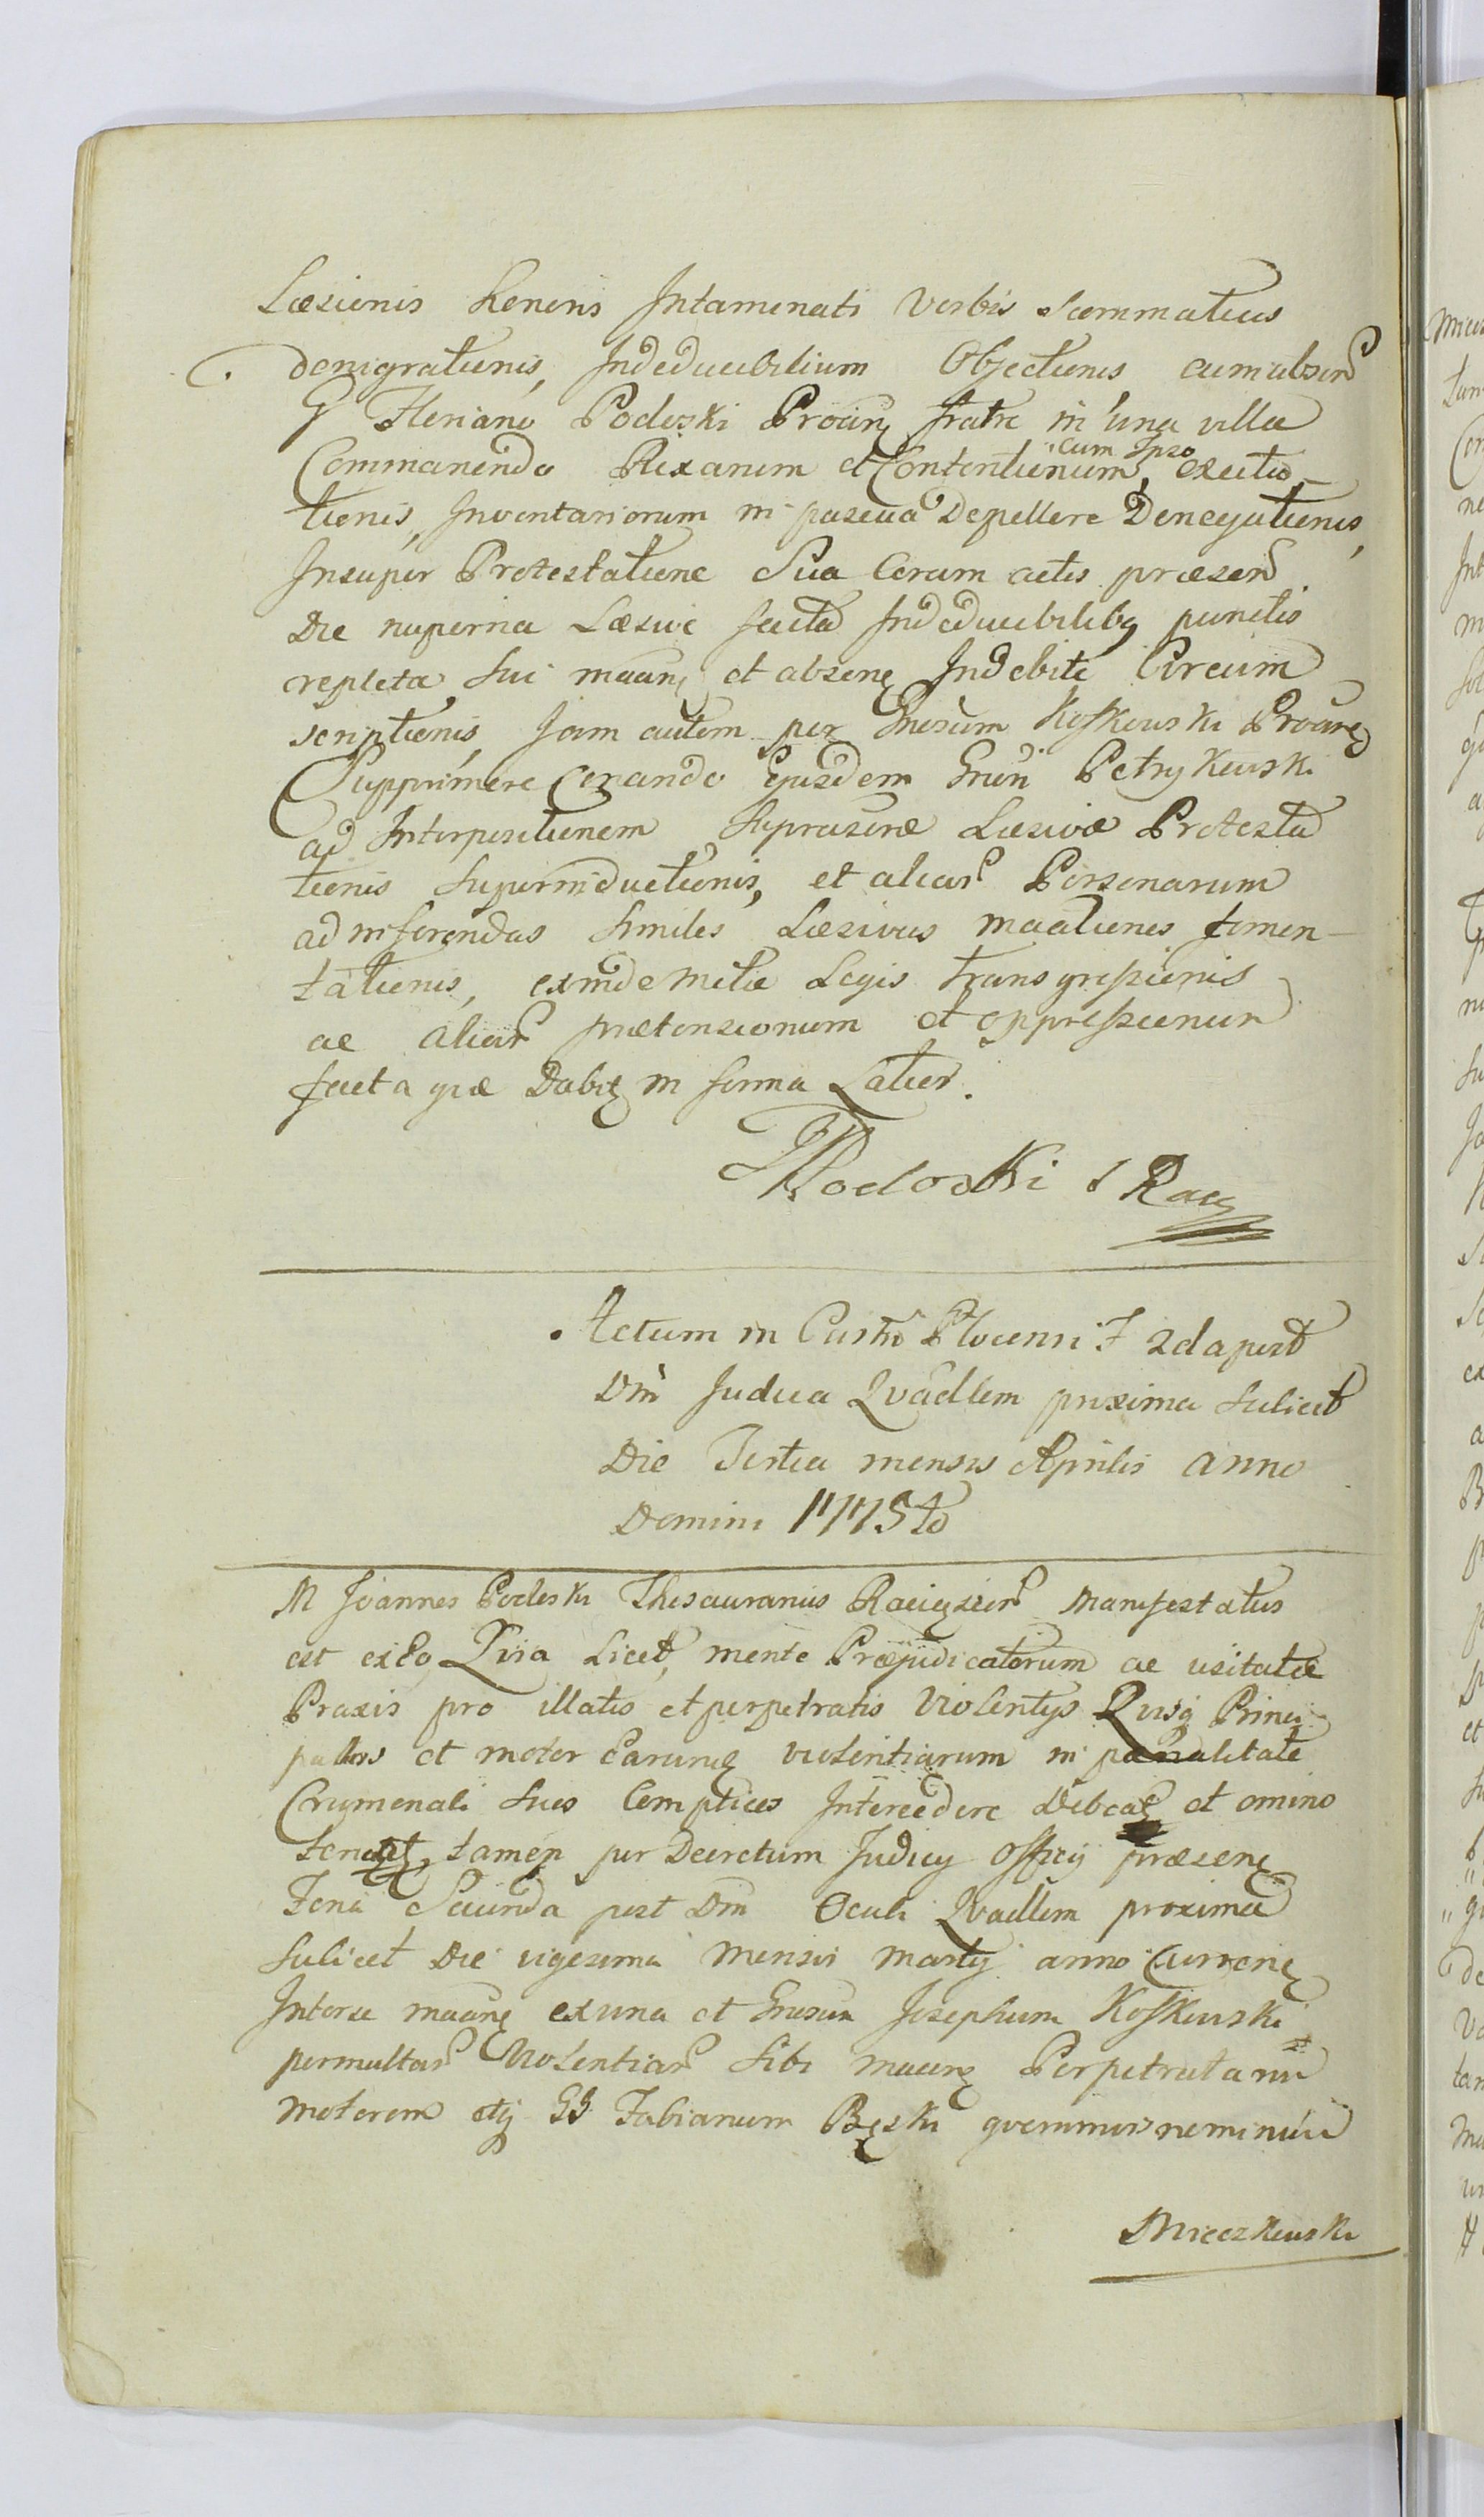 Læsionis honoris Intaminati verbis Scommaticis
denigrationis, Indeducibilium Objectionis cum absen
G Floriano Podoski Proāni fratre in una villa
Commanendo Rixarum et Contentionum, cum Ipso excita
tionis, Inventariorum in pascua Depellere Denegationis,
Insuper Protestatione Sua Coram actis præsen
Die nuperna Læsive facta Indeducibilibq punctis
repleta sui maanț et absenț Indebite Circum
scriptionis, Jam autem per Gnosum Koskowski Proānț
Supprimere Conando Ejusdem Gnōn Petrykowski
ad Interpositionem Suprascræ Læsivæ Protesta
tionis Superinductionis, et aliar Personarum
ad inferendas similes Læsivas maātiones fomen-
tationis, exinde mitiæ Legis transgressionis
ac aliar prætensionum et oppressionum
facta quæ Dabiț in forma Latior.
JPodoski S Racț
Actum in Castro Plocensi F 2da post
Dm̄ Judica Qvadlem proxima Scilicet
Die Tertia mensis Aprilis anno
Domini 1775to
M Joannes Podoski Thesaurarius Raciązen Manifestatus
est exeo Qvia Licet, mente Præjudicatorum ac usitatæ
Praxis pro illatis et perpetratis Violentys Qvisq Princi
palis et motor Earundț violentiarum in pænalitate
Crymenali suos Complices Intercedere Debeat et omino
teneatț, tamen per Decretum Judicy Officy præsenț
Feria Secunda post Dm̄ Oculi Qvadlem proxima
Scilicet Die vigesima Mensis Marty anno Currenț
Interse maānț ex una et Gnosum Josephum Koskowski
permultar Violentiar Sibi maanț Perpetratarum
motorem atq GG Fabianum Bęski qvemmis nominūi
Mieczkowski